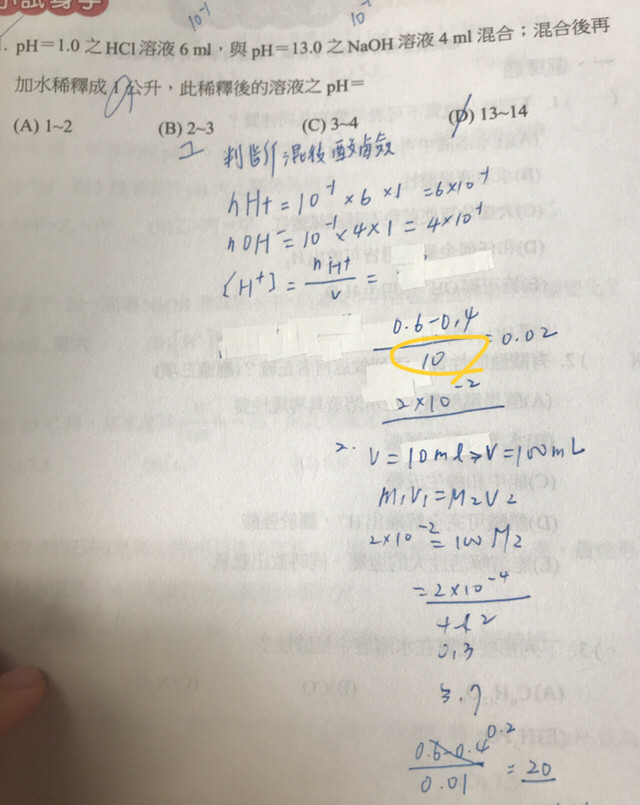 小試身手
10⁻¹ 10⁻¹
1. pH=1.0 之 HCl 溶液 6 ml，與 pH=13.0 之 NaOH 溶液 4 ml 混合；混合後再
加水稀釋成 1 公升，此稀釋後的溶液之 pH=
(A) 1~2 (B) 2~3 (C) 3~4 (D) 13~14
1. 判斷混後酸鹼
nH+ = 10⁻¹ × 6 × 1 = 6×10⁻¹
nOH⁻ = 10⁻¹ × 4 × 1 = 4×10⁻¹
[H⁺] = nH+/V =
0.6-0.4/10 = 0.02
2×10⁻²
2. V=10ml → V=100mL
M₁V₁=M₂V₂
2×10⁻² = 100 M₂
= 2×10⁻⁴
0.3
3.7
0.6-0.4 0.2/0.01 = 20